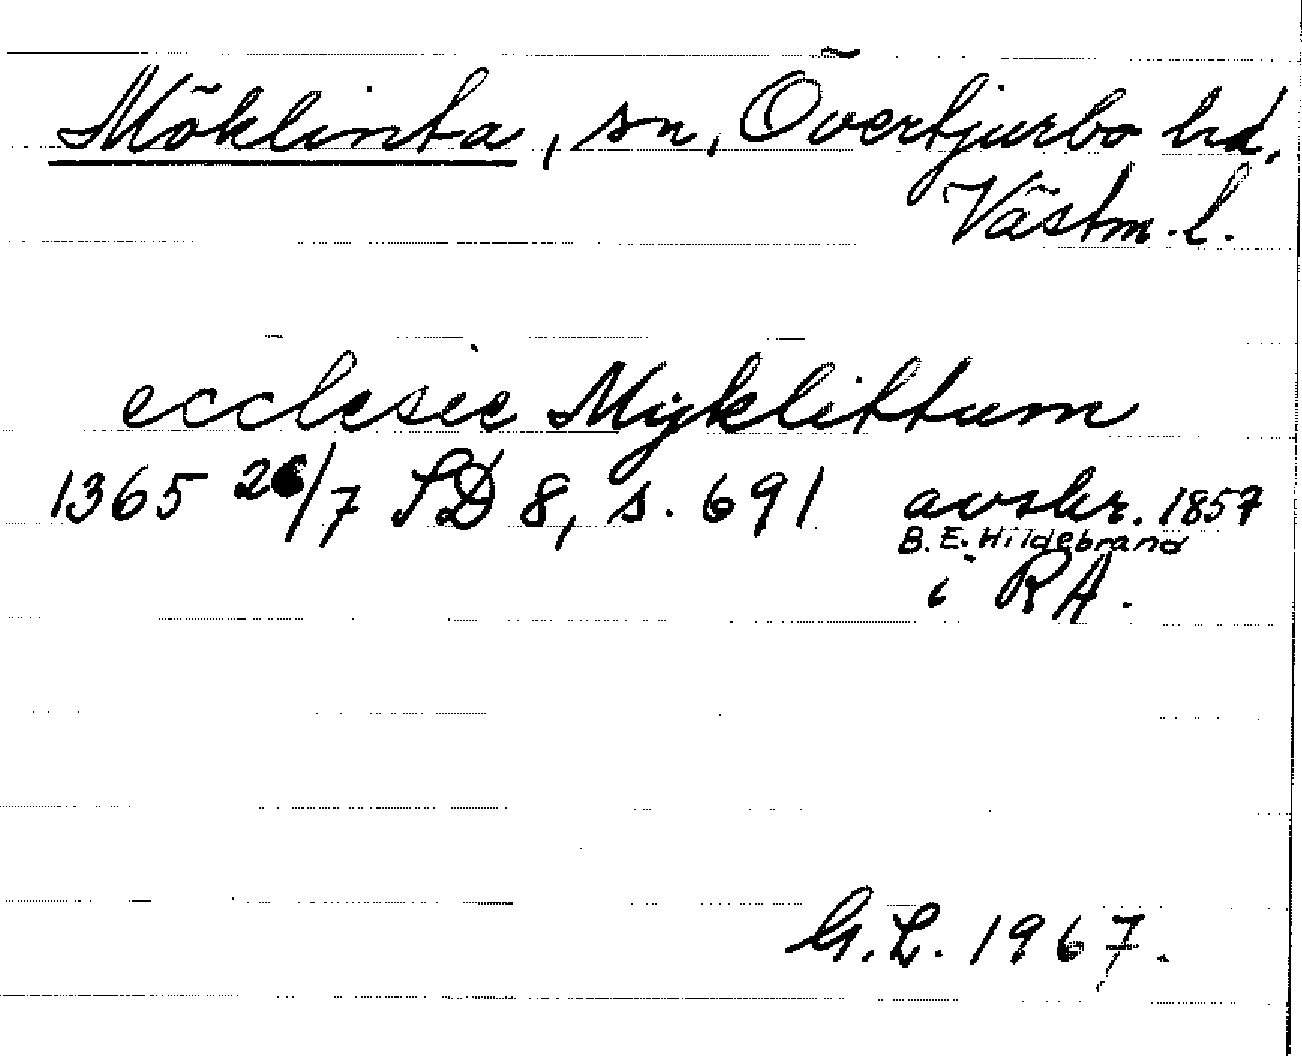 Möklinta, sn, Övertjurbo hd,
Västm. l.
ecclesie Myklittum
1365 26/7 SD 8, s. 691 avskr. 1857
B. E. Hildebrand
i RA.
G. L. 1967.